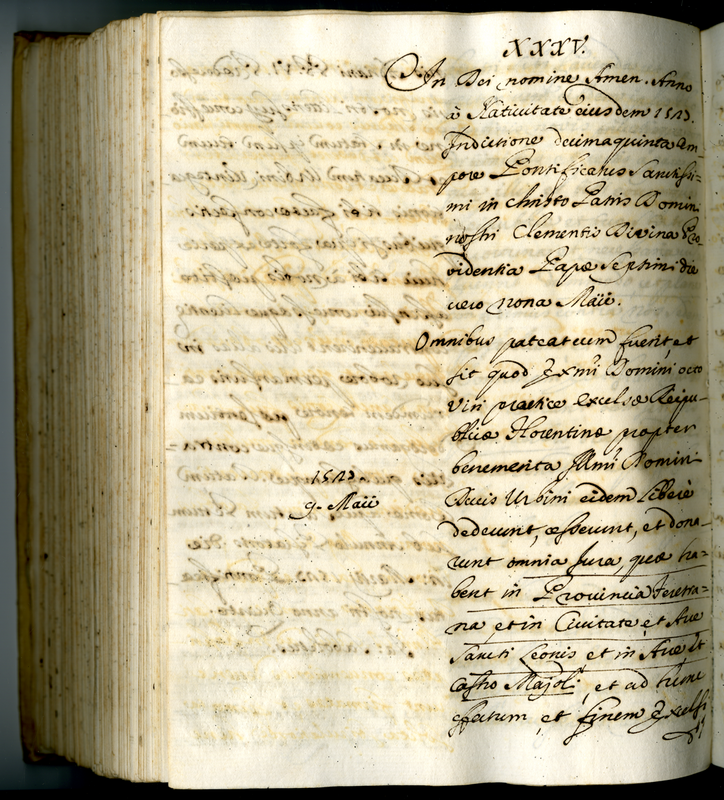 XXXV.
In Dei nomine Amen. Anno
à Nativitate eiusdem 1527.
Indictione decimaquinta tem-
pore Pontificatus Sanctissi-
mi in Christo Patris Domini
nostri Clementis Divina Pro-
videntia Papæ Septimi die
vero nona Maii.
Omnibus pateat cum fuerit, et
sit quod Exmi Domini octo
viri practicæ excelsæ Reipu-
blicæ Florentinæ propter
benemerita Illmi Domini
1527.
9. Maii
Ducis Urbini eidem liberè
dederunt, cesserunt, et dona-
runt omnia Jura, quæ ha-
bent in Provincia Feretra-
na et in Civitate, et Arce
Sancti Leonis et in Arce et
Castro Majoli, et ad
effectum, et finem Excelsi